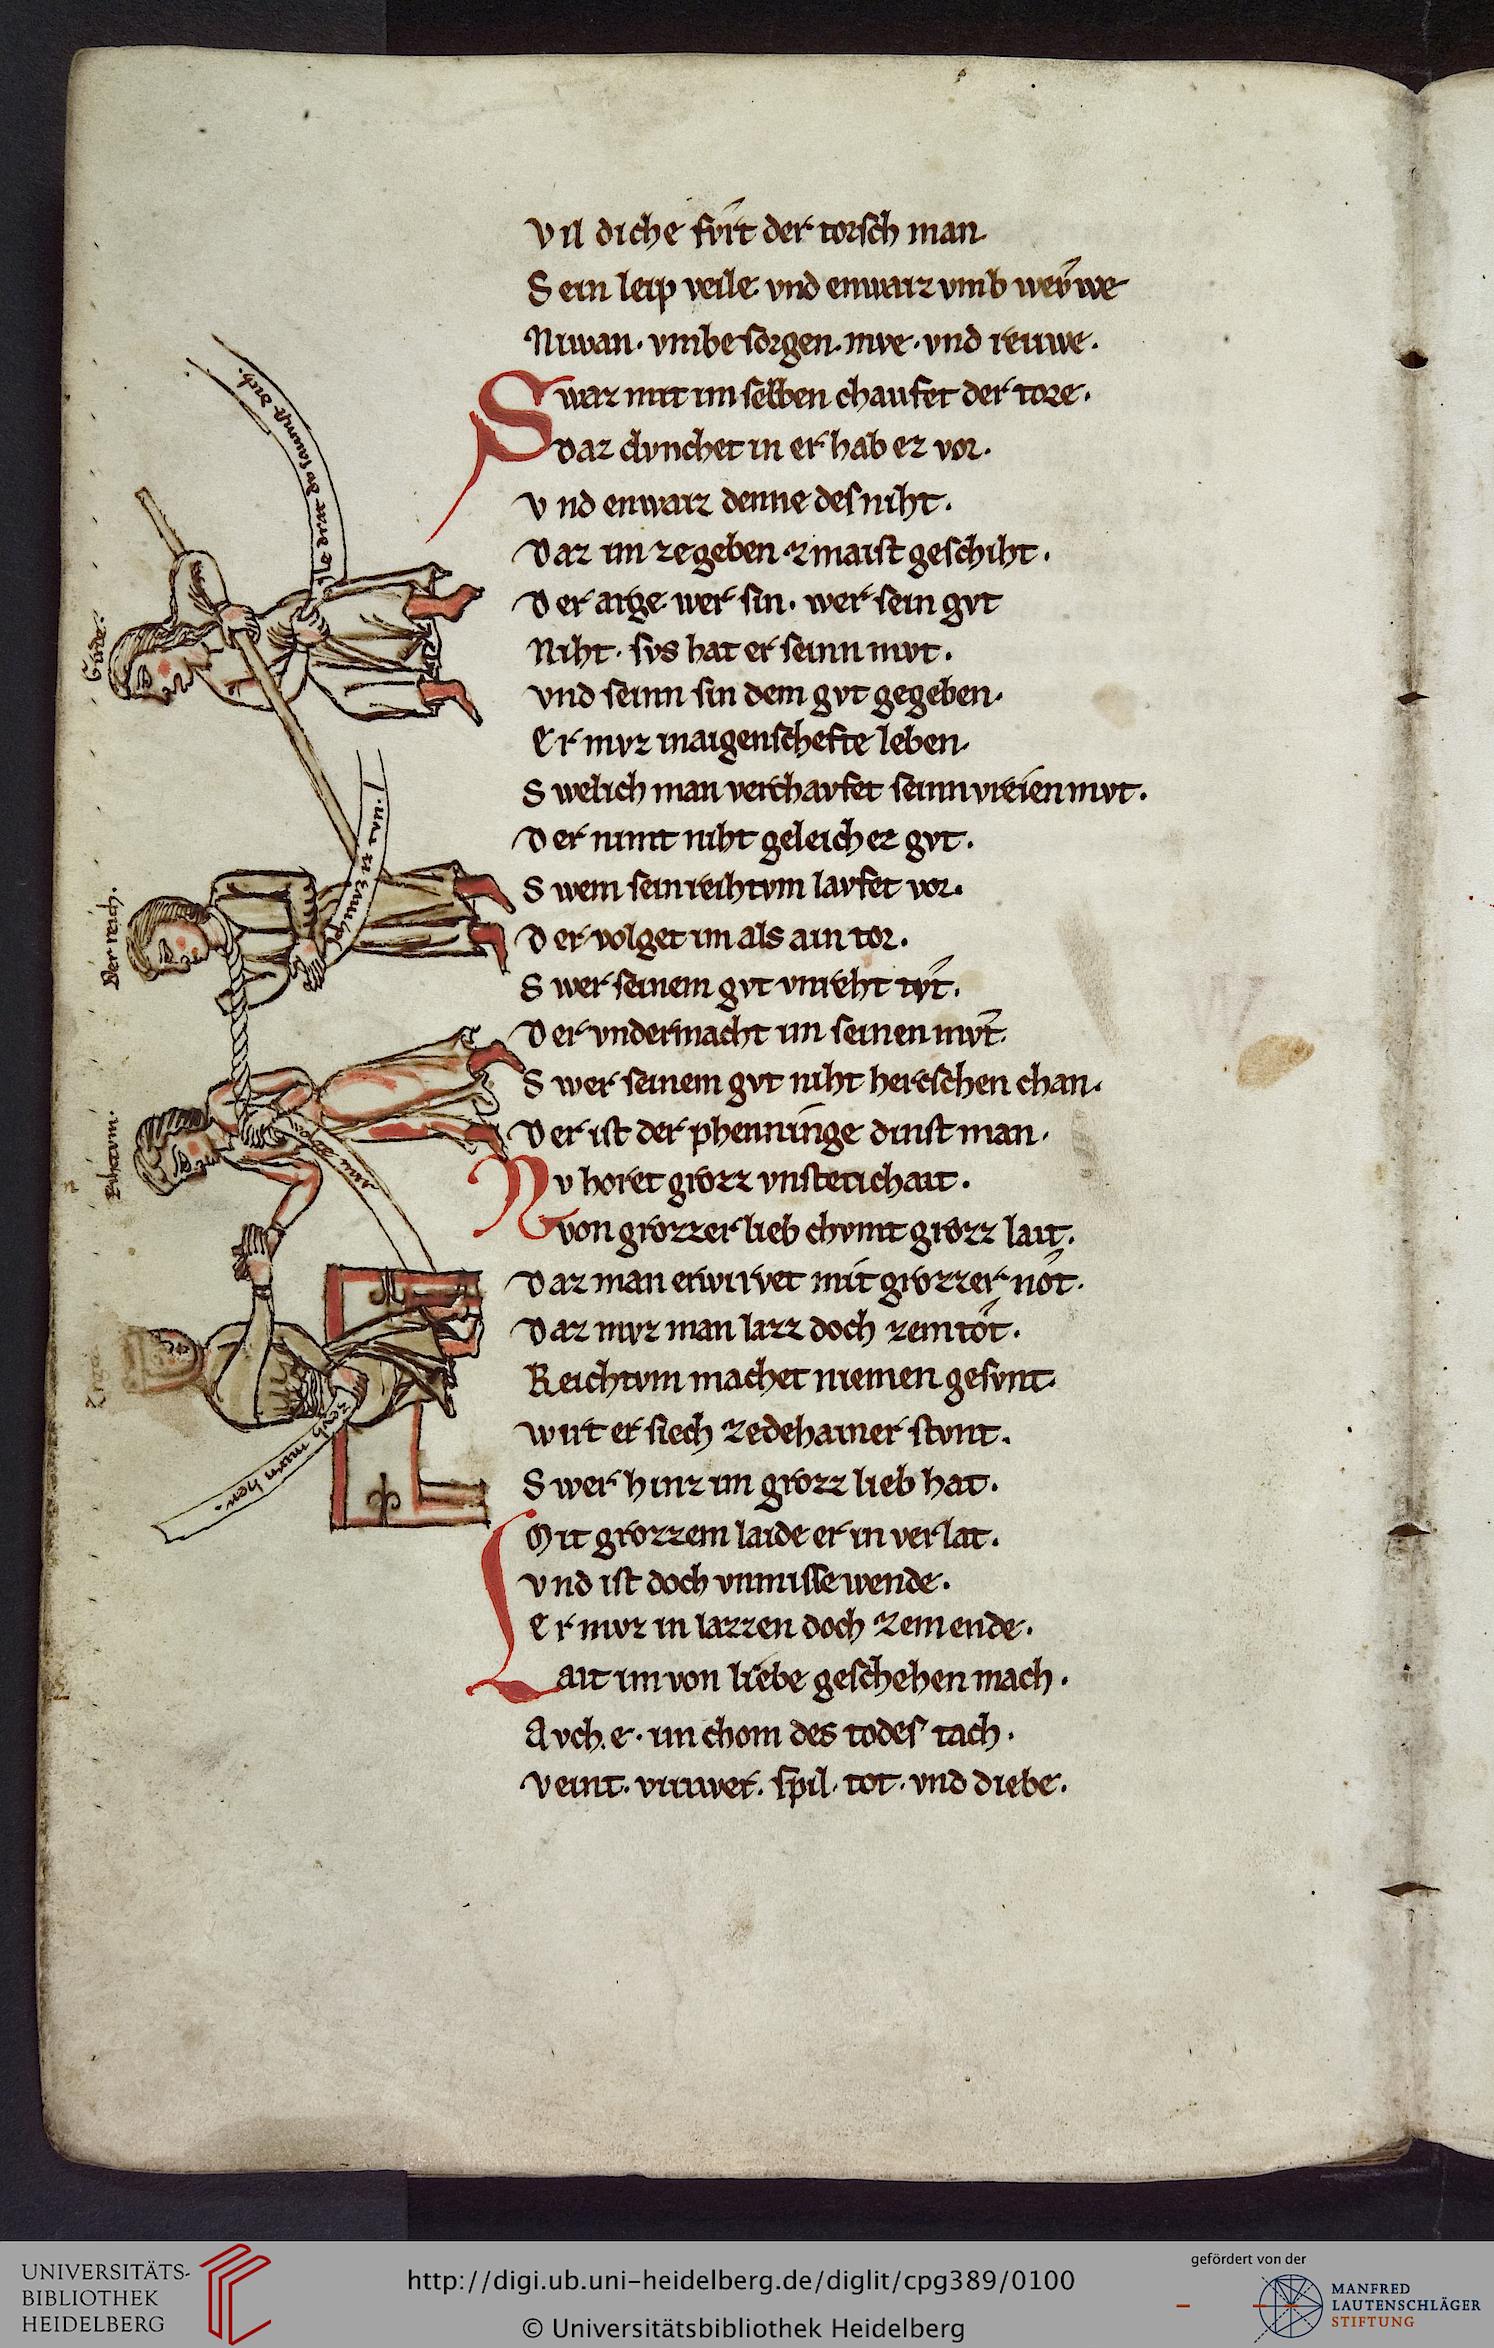 Vil diche fvrt der torsch man
Sein leip veile vnd enwaiz vmb wev we
Niwan· vmbe sorgen· mve· vnd reuwe·
Swaz mit im selben chaufet der tore·
Daz dvnchet in er hab ez vor·
Vnd enwaiz denne des niht·
Daz im ze geben· zmaist geschiht·
Der arge wer sin· wer sein gvt
Niht· svs hat er seinn mvt·
vnd seinn sin dem gvt gegeben·
Er mvz in aigenschefte leben·
Swelich man verchavfet seinn vreien mvt·
Der nimt niht geleich ez gvt·
Swem sein reichtvm lavfet vor·
Der volget im als ain tor·
Swer seinem gvt vnreht tvt·
Der vndermacht im seinen mvt·
Swer seinem gvt niht herrschen chan·
Der ist der phenninge dinst man·
Nv horet grozz vnstetichait·
von grozzer lieb chvmt grozz lait·
Daz man erwirvet mit grozzer not·
Daz mvz man lazz doch zem tot·
Reichtvm machet niemen gesvnt·
wirt er siech ze dehainer stvnt·
Swer hinz im grozz lieb hat·
Mit grozzem laide er in verlat·
vnd ist doch vnmissewende·
Er mvz in lazzen doch zem ende·
Lait im von liebe geschehen mach·
Avch· e· im chom des todes tach·
Veint· viuwer· spil· tot· vnd diebe·
Der reich·
Rihtvm·
zevch mich her·
UNIVERSITÄTS-
BIBLIOTHEK
HEIDELBERG
http://digi.ub.uni-heidelberg.de/diglit/cpg389/0100
© Universitätsbibliothek Heidelberg
gefördert von der
MANFRED
LAUTENSCHLÄGER
STIFTUNG